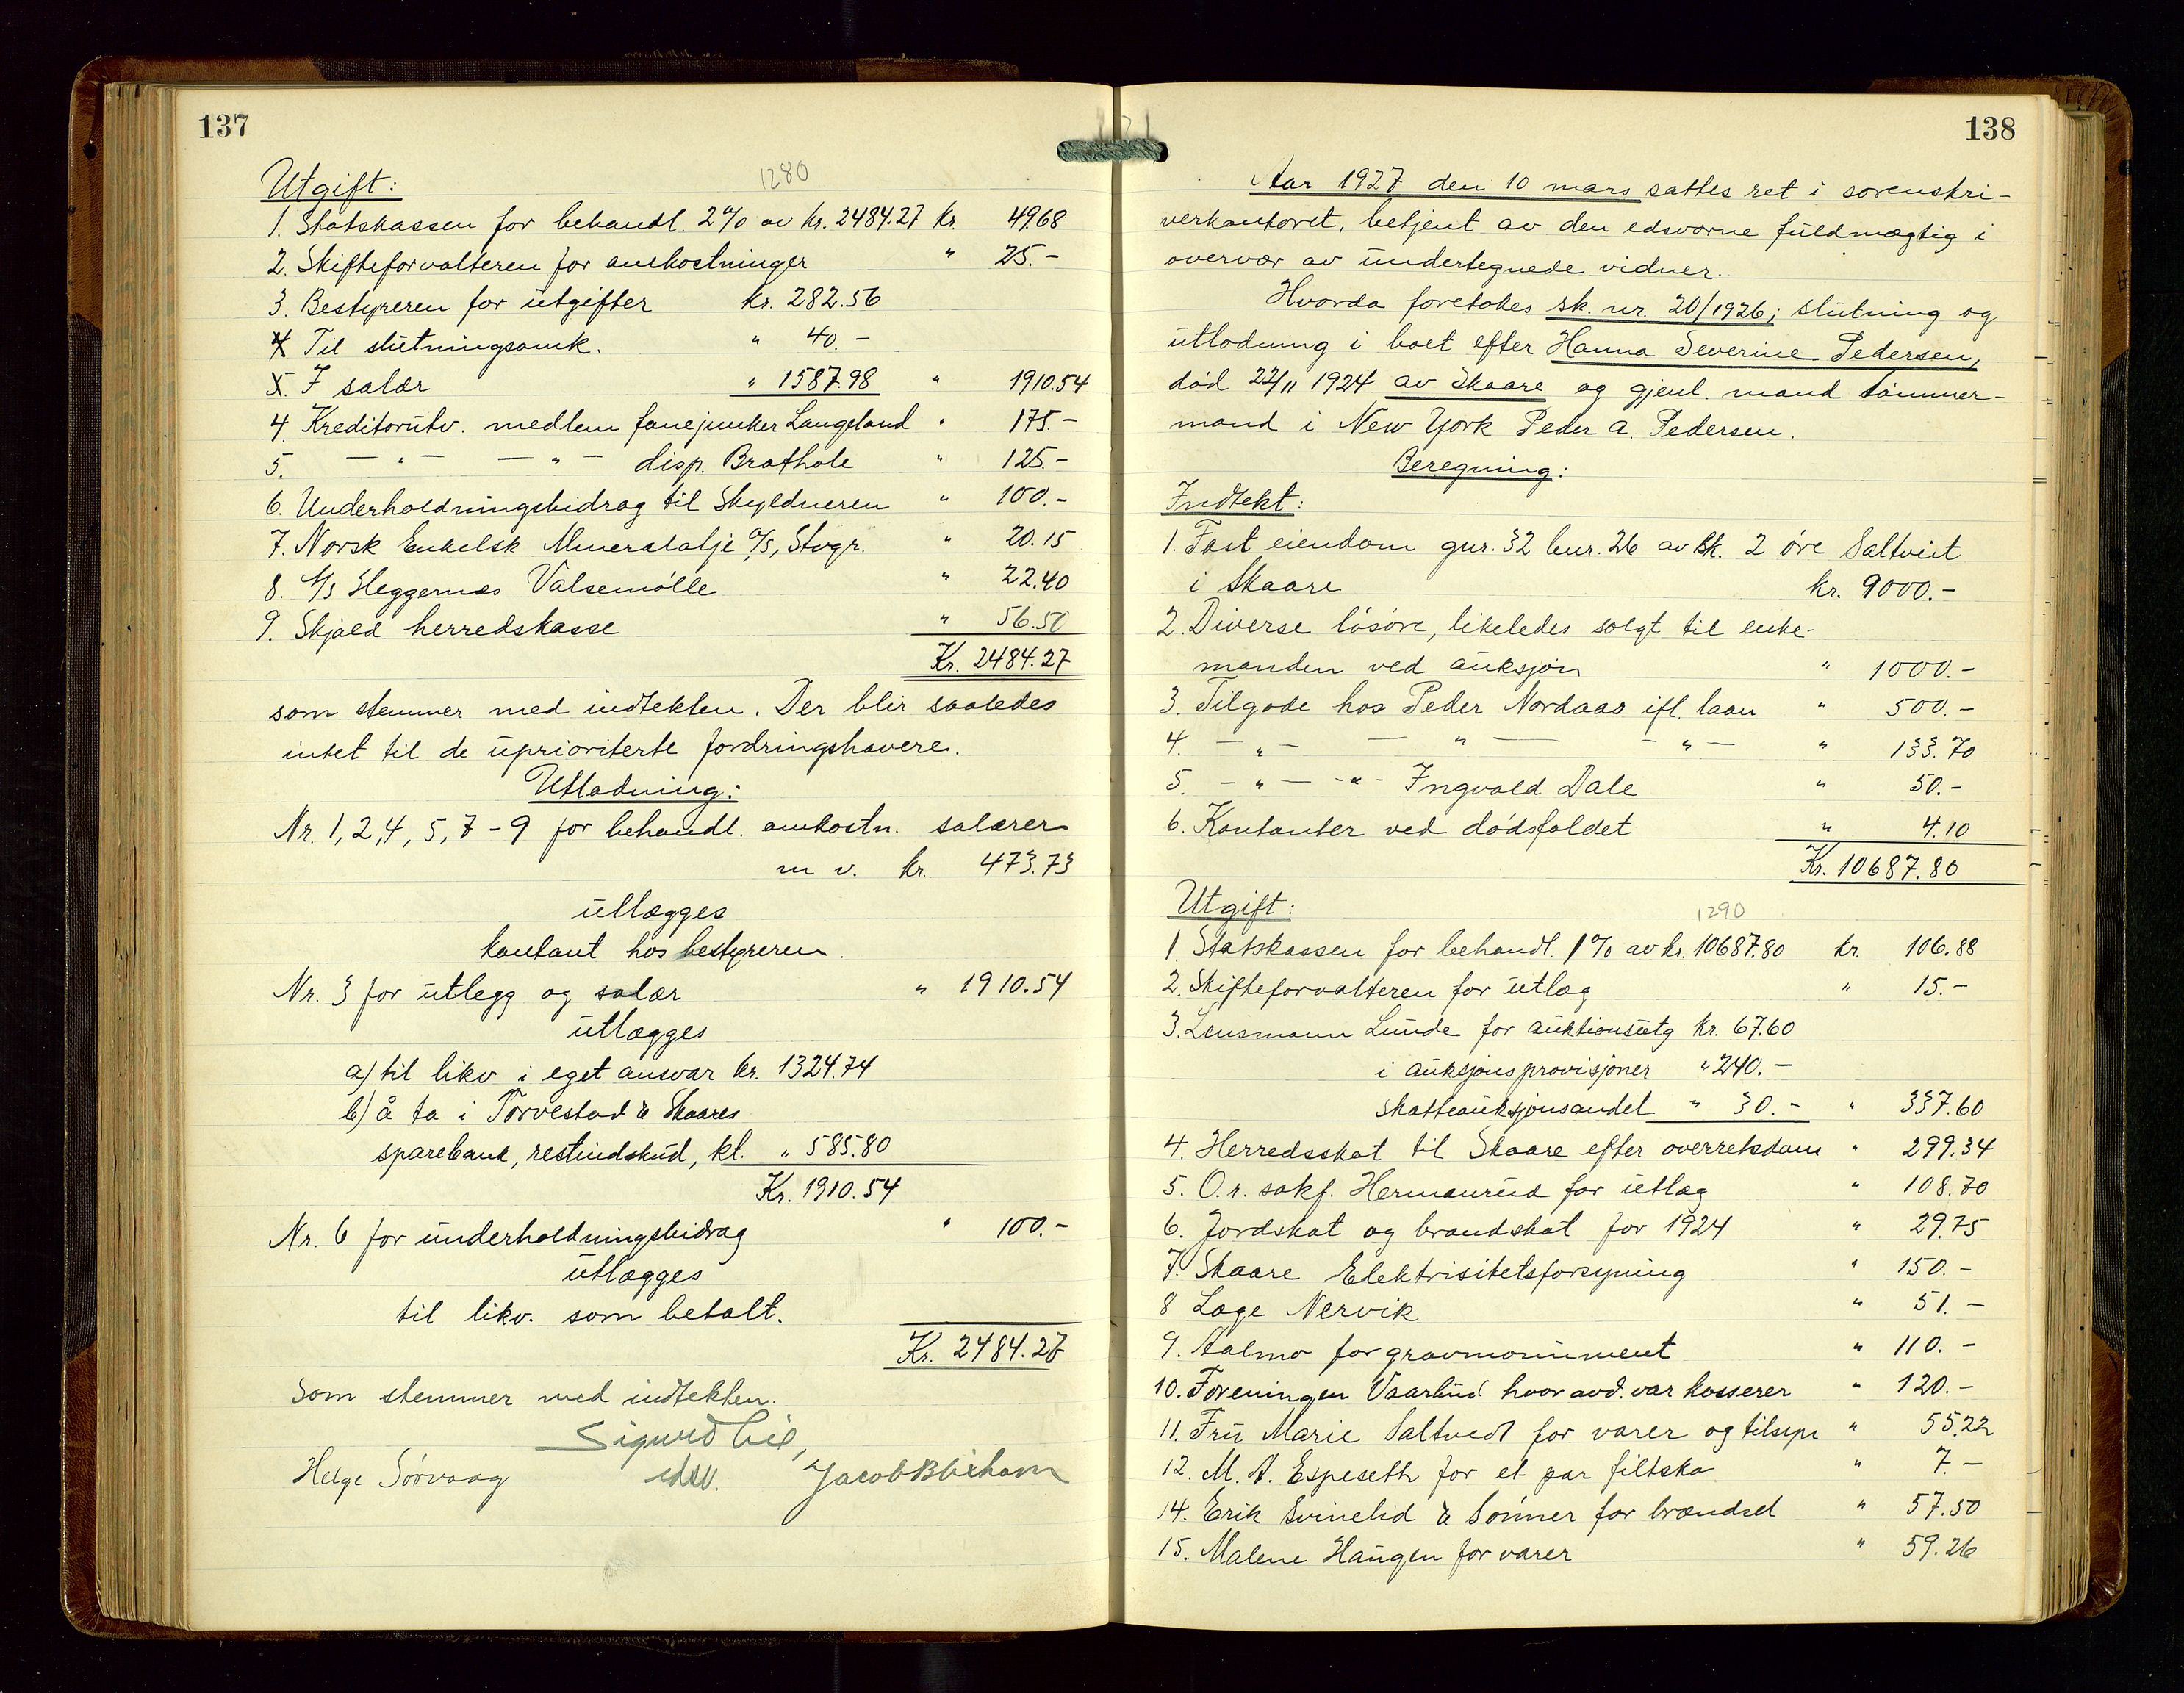 137
Utgift:
1280
1. Statskassen for behandl. 2% av kr. 2484.27 kr. 49.68
2. Skifteforvalteren for omkostninger " 25.-
3. Bestyreren for utgifter kr. 282.56
4 Til slutningsomk. " 40.-
5. I salær " 1587.98 " 1910.54
4. Kreditorutv. medlem fanejunker Langeland " 175.-
5. - " - - " - disp. Brathole " 125.-
6. Underholdningsbidrag til Skyldneren " 100.-
7. Norsk Enkelsk Mineralolje A/S, Stvgr. " 20.15
8. A/S Heggernes Valsemølle " 22.40
9. Skjold herredskasse " 56.50
Kr. 2484.27
som stemmer med indtekten. Der blir saaledes
intet til de uprioriterte fordringshavere.
Utlodning:
Nr. 1, 2, 4, 5, 7-9 for behandl. omkostn. salærer
m v. kr. 473.73
utlægges
kontant hos bestyreren.
Nr. 3 for utlegg og salær " 1910.54
utlægges
a) til likv i eget ansvar kr. 1324.74
b) å ta i Torvestad & Skaares
sparebank, restindskud, kl. " 585.80
Kr. 1910.54
Nr. 6 for underholdningsbidrag " 100.-
utlægges
til likv. som betalt.
Kr. 2484.27
Som stemmer med indtekten.
Sigurd
Helge Sørvaag edsv. Jacob

138
Aar 1927 den 10 mars sattes ret i sorenskri-
verkontoret, betjent av den edsvorne fuldmægtig i
overvær av undertegnede vidner.
Hvorda foretokes sk. nr. 20/1926; slutning og
utlodning i boet efter Hanna Severine Pedersen,
død 22/11 1924 av Skaare og gjenl. mand tømmer-
mand i New York Peder A. Pedersen.
Beregning:
Indtekt:
1. Fast eiendom gnr. 32 bnr. 26 av sk. 2 øre Saltveit
i Skaare kr. 9000.-
2. Diverse løsøre, likeledes solgt til enke-
manden ved auksjon " 1000.-
3. Tilgode hos Peder Nordaas ifl. laan " 500.-
4. - " - - " - - " - " 133.70
5. - " - - " - Ingvald Dale " 50.-
6. Kontanter ved dødsfaldet " 4.10
Kr. 10687.80
Utgift:
1290
1. Statskassen for behandl. 1% av kr. 10687.80 kr. 106.88
2. Skifteforvalteren for utlæg " 15.-
3. Lensmann Lunde for auktionsutg kr. 67.60
i auksjonsprovisjoner " 240.-
skatteauksjonsandel " 30.- " 337.60
4. Herredsskat til Skaare efter overretsdom " 299.34
5. O.r. sakf. Hermanrud for utlæg " 108.70
6. Jordskat og brandskat for 1924 " 29.75
7. Skaare Elektrisitetsforsyning " 150.-
8 Læge Nervik " 51.-
9. Aalmo for gravmonument " 110.-
10. Foreningen Vaarbud hvor avd. var kasserer " 120.-
11. Fru Marie Saltvedt for varer og tilsyn " 55.22
12. M. A. Espeseth for et par filtsko " 7.-
14. Erik Svinelid & Sønner for brændsel " 57.50
15. Malene Haugen for varer " 59.26